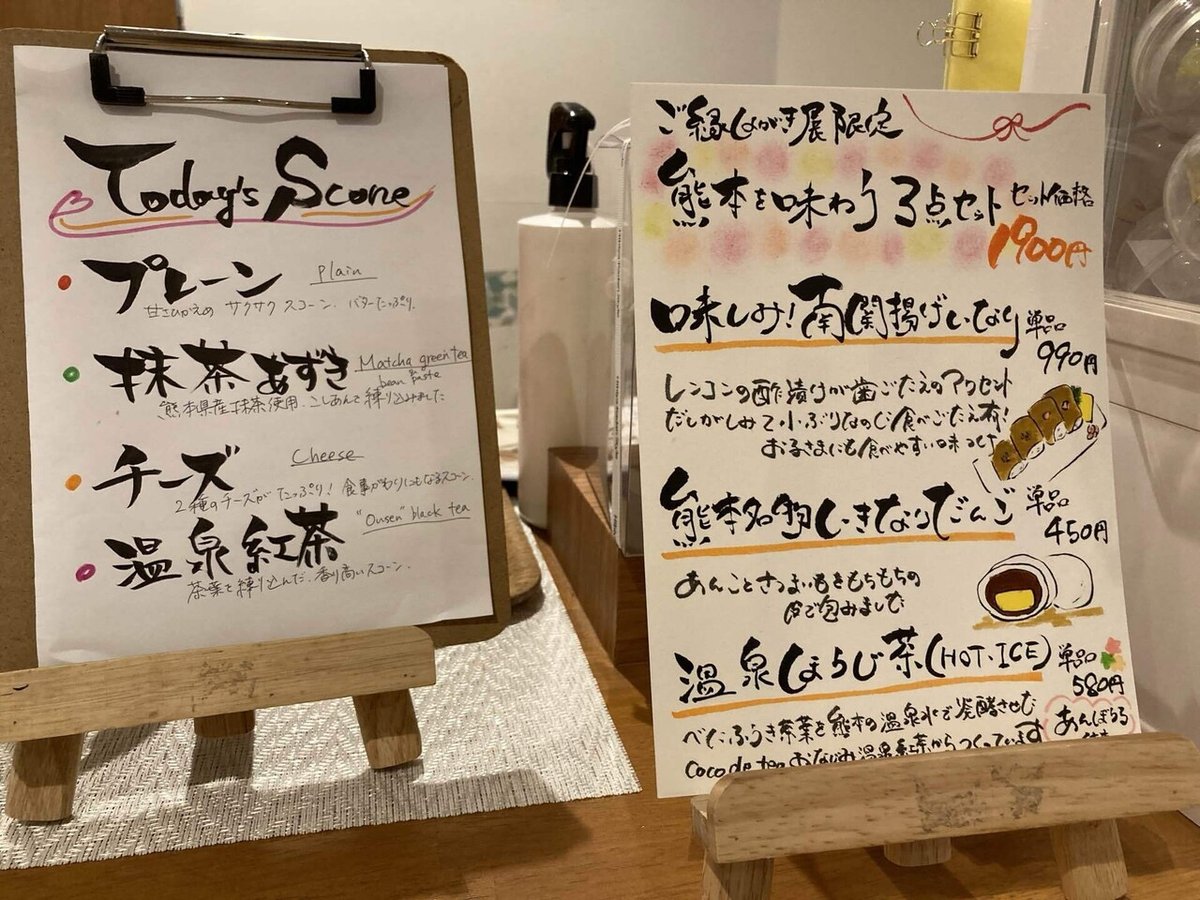 Today's Scone
プレーン Plain
甘さひかえめ サクサク スコーン. バターたっぷり.
抹茶あずき Matcha green tea
bean paste
熊本県産抹茶使用. こしあんを練り込みました
チーズ Cheese
2種のチーズがたっぷり! 食事がわりにもなるスコーン.
温泉紅茶 "Onsen" black tea
茶葉を練り込んだ. 香り高いスコーン.
ご縁しながき展限定
熊本を味わう3点セット セット価格
1900円
味しみ!南関揚げいなり 単品
990円
レンコンの酢漬けが歯ごたえのアクセント
だしがしみて小ぶりなのに食べごたえ有!
お子さまにも食べやすい味つけ
熊本名物いきなりだんご 単品
450円
あんことさつまいもをもちもちの
皮で包みました
温泉ほうじ茶(HOT・ICE) 単品
580円
べにふうき茶葉を熊本の温泉水で発酵させた
coco de tea おなじみ温泉紅茶からつくっています